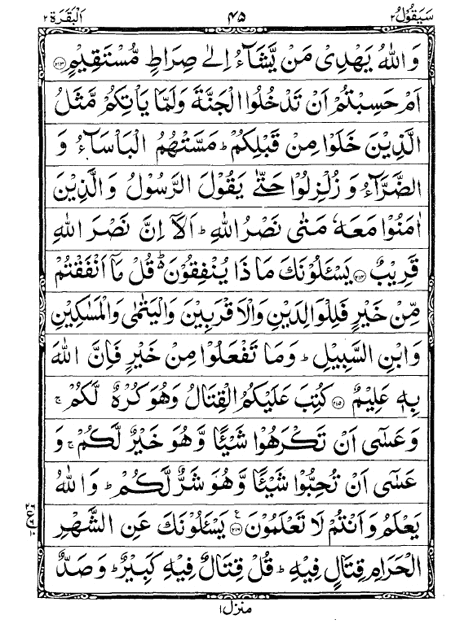 سَيَقُوْلُ ٢ ٤٥ اَلْبَقَرَة ٢
وَاللّٰهُ يَهْدِىْ مَنْ يَّشَآءُ اِلٰى صِرَاطٍ مُّسْتَقِيْمٍ ﴿٢١٣﴾
اَمْ حَسِبْتُمْ اَنْ تَدْخُلُوا الْجَنَّةَ وَلَمَّا يَاْتِكُمْ مَّثَلُ
الَّذِيْنَ خَلَوْا مِنْ قَبْلِكُمْ ؕ مَسَّتْهُمُ الْبَاْسَآءُ وَ
الضَّرَّآءُ وَ زُلْزِلُوْا حَتّٰى يَقُوْلَ الرَّسُوْلُ وَ الَّذِيْنَ
اٰمَنُوْا مَعَهٗ مَتٰى نَصْرُ اللّٰهِ ؕ اَلَاۤ اِنَّ نَصْرَ اللّٰهِ
قَرِيْبٌ ﴿٢١٤﴾ يَسْـَٔلُوْنَكَ مَا ذَا يُنْفِقُوْنَ ؕ قُلْ مَاۤ اَنْفَقْتُمْ
مِّنْ خَيْرٍ فَلِلْوَالِدَيْنِ وَالْاَقْرَبِيْنَ وَالْيَتٰمٰى وَالْمَسٰكِيْنِ
وَابْنِ السَّبِيْلِ ؕ وَمَا تَفْعَلُوْا مِنْ خَيْرٍ فَاِنَّ اللّٰهَ
بِهٖ عَلِيْمٌ ﴿٢١٥﴾ كُتِبَ عَلَيْكُمُ الْقِتَالُ وَهُوَ كُرْهٌ لَّكُمْ ۚ
وَعَسٰۤى اَنْ تَكْرَهُوْا شَيْـًٔا وَّهُوَ خَيْرٌ لَّكُمْ ۚ وَ
عَسٰۤى اَنْ تُحِبُّوْا شَيْـًٔا وَّهُوَ شَرٌّ لَّكُمْ ؕ وَاللّٰهُ
يَعْلَمُ وَاَنْتُمْ لَا تَعْلَمُوْنَ ﴿٢١٦﴾ يَسْـَٔلُوْنَكَ عَنِ الشَّهْرِ
الْحَرَامِ قِتَالٍ فِيْهِ ؕ قُلْ قِتَالٌ فِيْهِ كَبِيْرٌ ؕ وَصَدٌّ
منزل ١